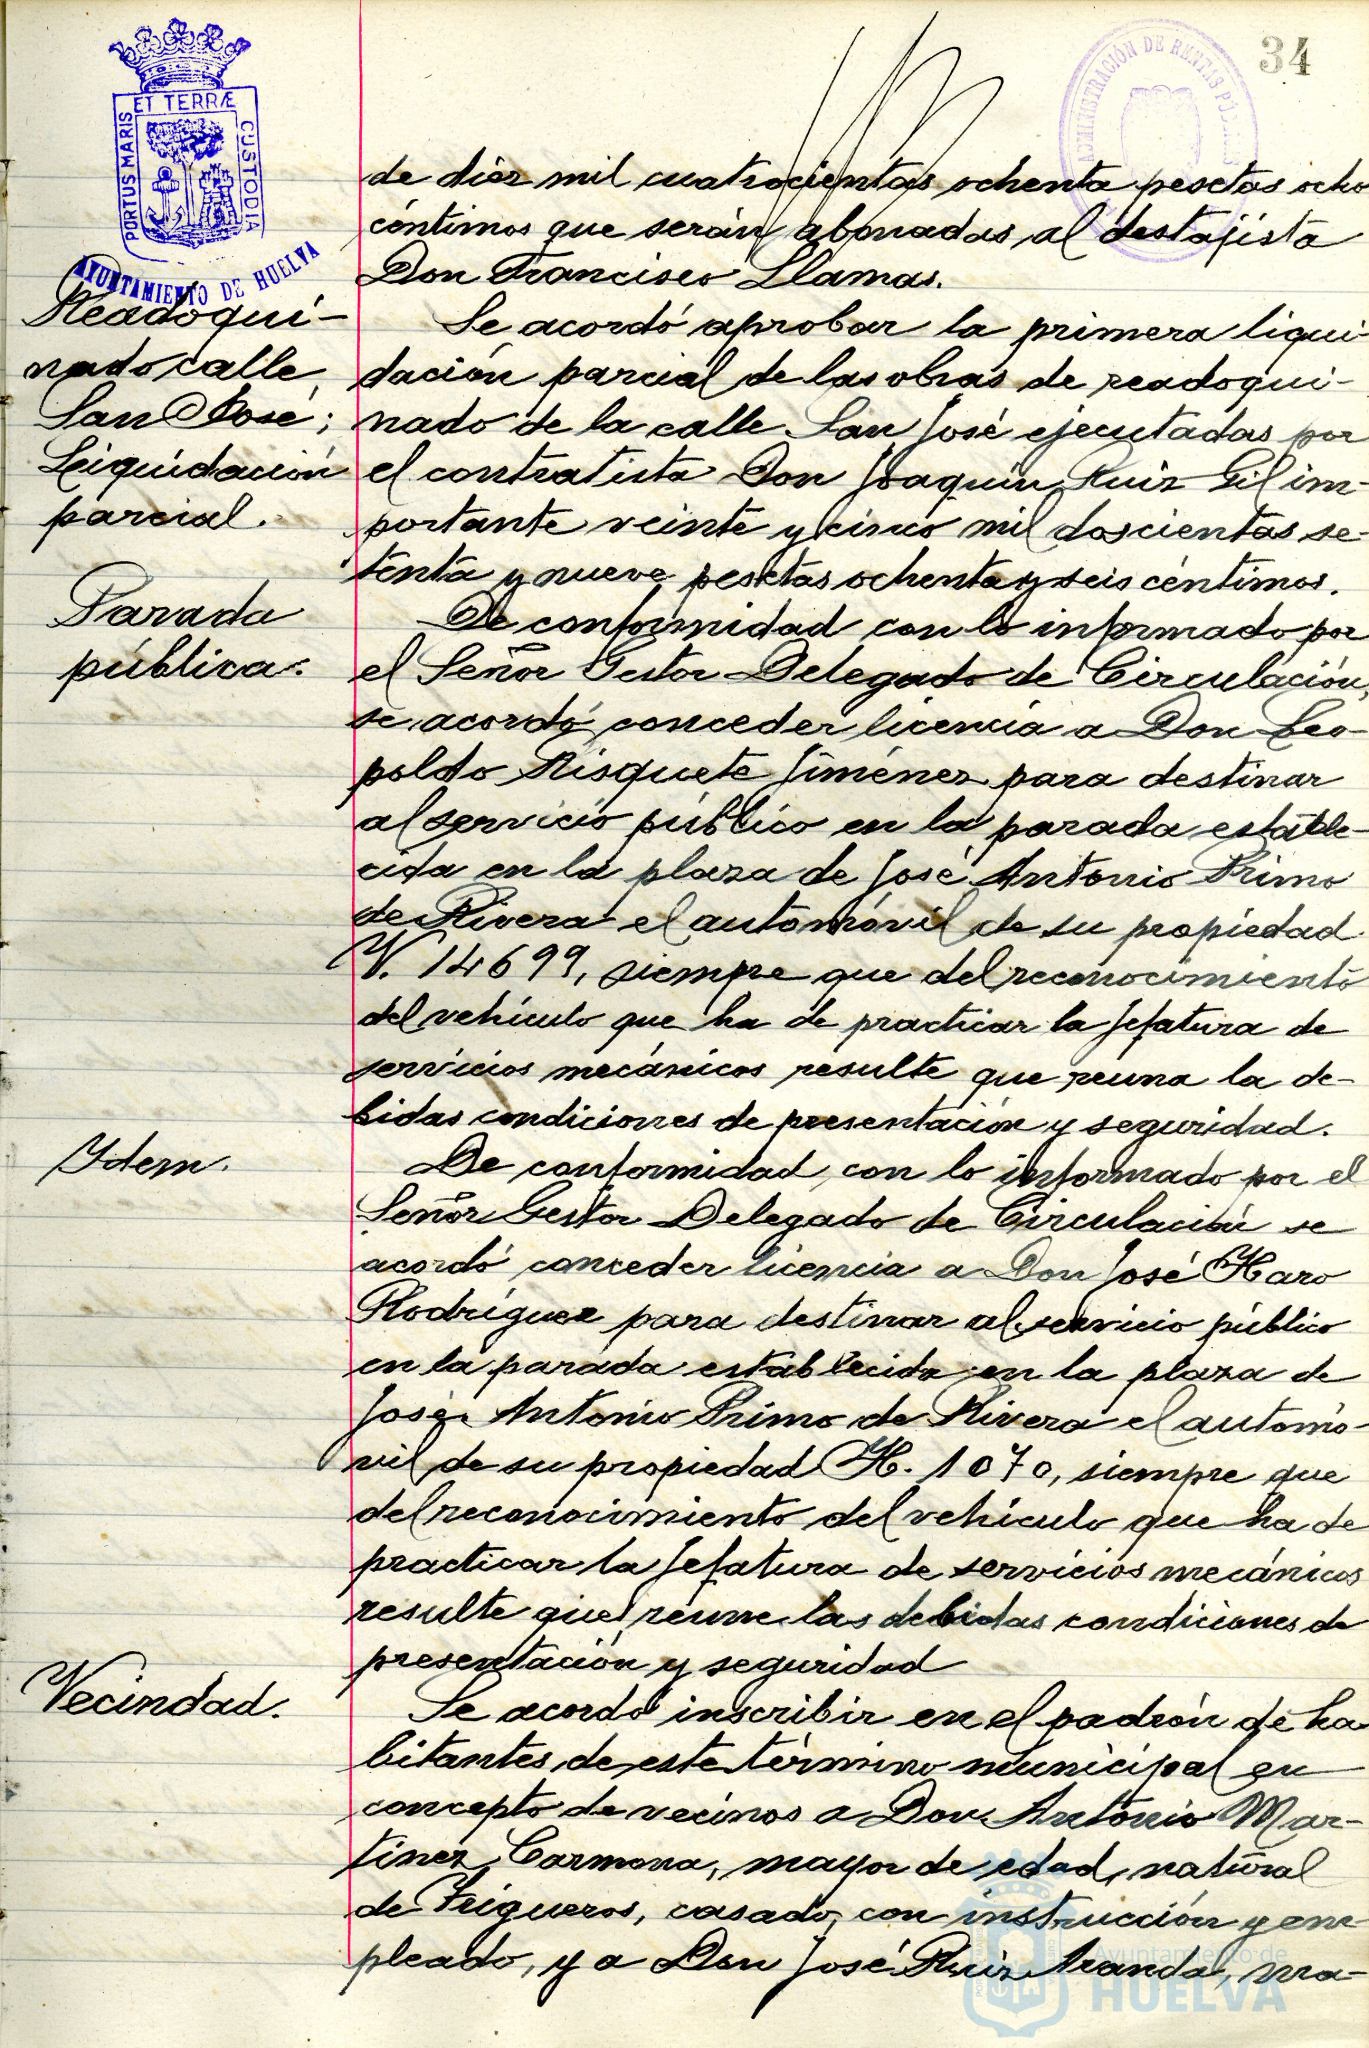 34
PORTUS MARIS ET TERRÆ CUSTODIA
AYUNTAMIENTO DE HUELVA
ADMINISTRACIÓN DE RENTAS PÚBLICAS
de diez mil cuatrocientas ochenta pesetas ocho
céntimos que serán abonadas al destajista
Don Francisco Llamas.
Readoqui-
nado calle
San José;
Liquidación
parcial.
Se acordó aprobar la primera liqui
dación parcial de las obras de readoqui-
nado de la calle San José ejecutadas por
el contratista Don Joaquín Ruiz Gil im-
portante veinte y cinco mil doscientas se-
tenta y nueve pesetas ochenta y seis céntimos.
Parada
pública.
De conformidad con lo informado por
el Señor Gestor Delegado de Circulación,
se acordó conceder licencia a Don Leo-
poldo Risquete Jiménez para destinar
al servicio público en la parada estable-
cida en la plaza de José Antonio Primo
de Rivera el automóvil de su propiedad
V. 14699, siempre que del reconocimiento
del vehículo que ha de practicar la Jefatura de
servicios mecánicos resulte que reuna la de-
bidas condiciones de presentación y seguridad.
Ydem.
De conformidad con lo informado por el
Señor Gestor Delegado de Circulación se
acordó conceder licencia a Don José Haro
Rodríguez para destinar al servicio público
en la parada establecida en la plaza de
José Antonio Primo de Rivera el automó-
vil de su propiedad H. 1070, siempre que
del reconocimiento del vehículo que ha de
practicar la Jefatura de servicios mecánicos
resulte que reúne las debidas condiciones de
presentación y seguridad
Vecindad.
Se acordó inscribir en el padrón de ha
bitantes de este término municipal en
concepto de vecinos a Don Antonio Mar-
tinez Carmona, mayor de edad, natural
de Trigueros, casado, con instrucción y em-
pleado, y a Don José Ruiz Aranda, ma-
Ayuntamiento de
HUELVA